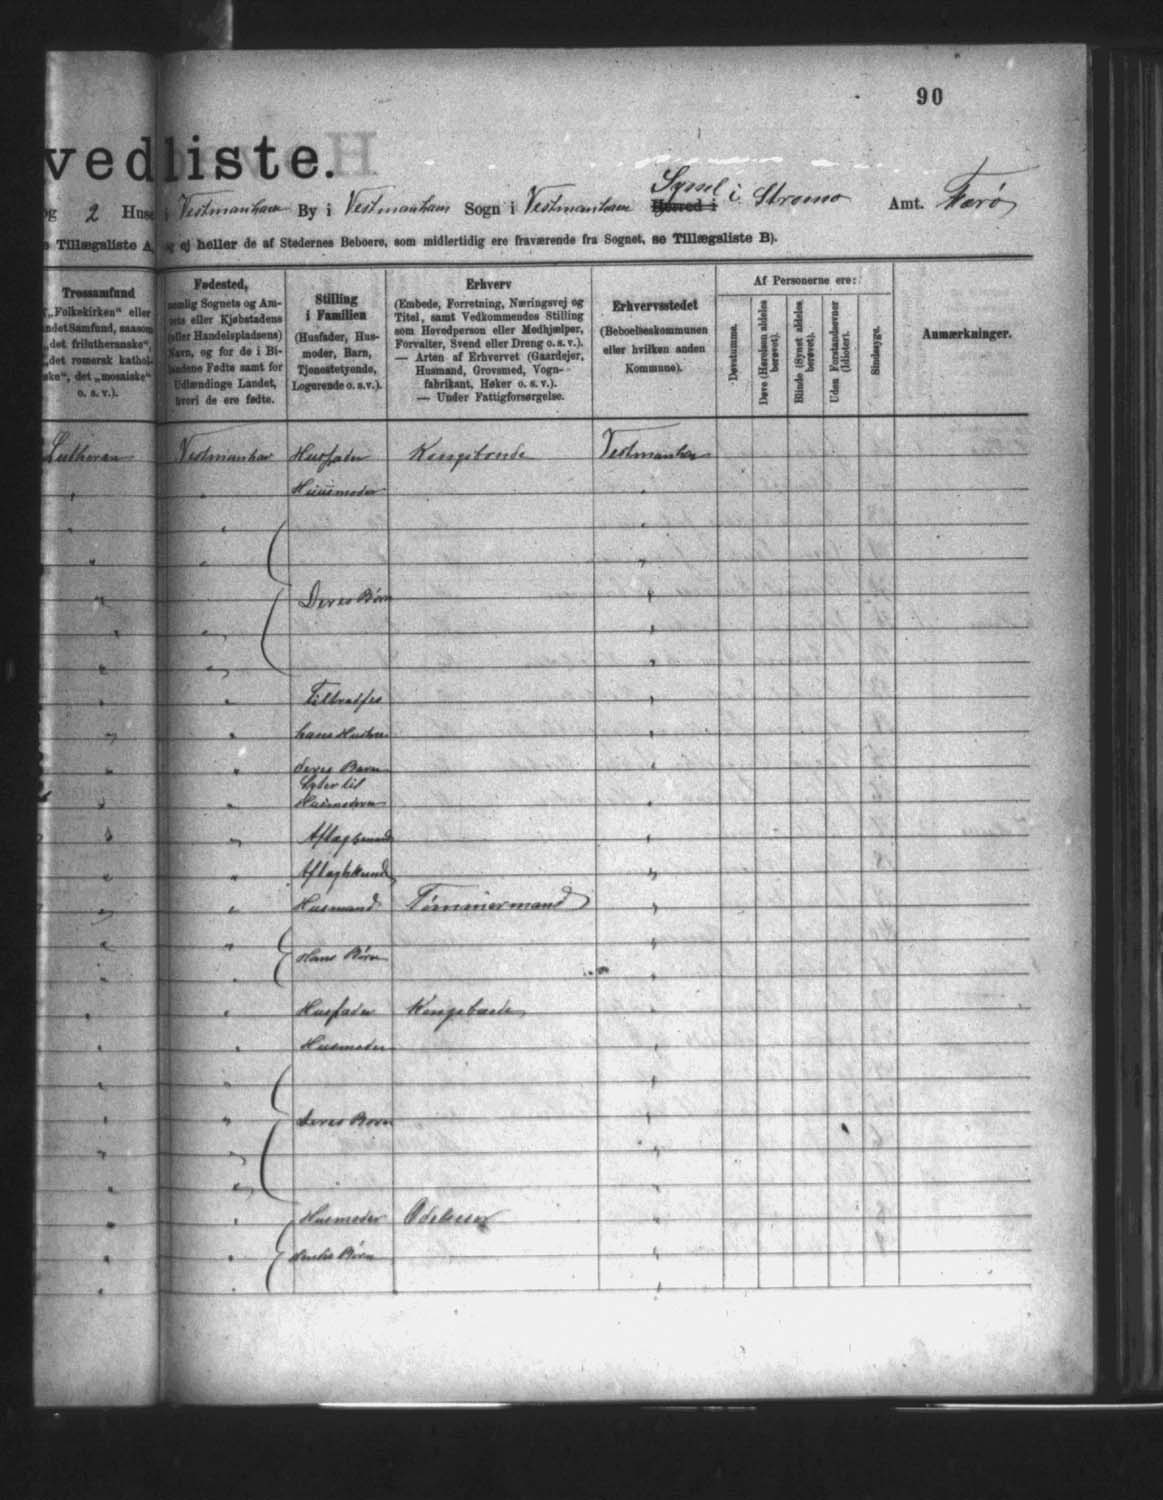 90
vedliste.
og 2 Huse i Vestmanhavn By i Vestmanhavn Sogn i Vestmanhavn Herred i Syssel i Strømø Amt. Færø
Tillægsliste A, og ej heller de af Stedernes Beboere, som midlertidig ere fraværende fra Sognet, se Tillægsliste B).
Trossamfund
„Folkekirken“ eller
andet Samfund, saasom
„det frilutheranske“,
„det romersk kathol-
ske“, det „mosaiske“
o. s. v.).
Fødested,
nemlig Sognets og Am-
tets eller Kjøbstadens
(eller Handelspladsens)
Navn, og for de i Bi-
landene Fødte samt for
Udlændinge Landet,
hvori de ere fødte.
Stilling
i Familien
(Husfader, Hus-
moder, Barn,
Tjenestetyende,
Logerende o. s. v.).
Erhverv
(Embede, Forretning, Næringsvej og
Titel, samt Vedkommendes Stilling
som Hovedperson eller Medhjælper,
Forvalter, Svend eller Dreng o. s. v.).
— Arten af Erhvervet (Gaardejer,
Husmand, Grovsmed, Vogn-
fabrikant, Høker o. s. v.).
— Under Fattigforsørgelse.
Erhvervsstedet
(Beboelseskommunen
eller hvilken anden
Kommune).
Af Personerne ere:
Døvstumme.
Døve (Hørelsen aldeles
berøvet).
Blinde (Synet aldeles
berøvet).
Uden Forstandsevner
(Idioter).
Sindssyge.
Anmærkninger.
Lutheran Vestmanhav Husfader Kongsbonde Vestmanhav
" " Husmoder "
" " "
" " "
" Deres Børn "
" " "
" " "
" " "
" " hans Hustru "
" " deres Barn "
Søster til
" " Husmoderen "
" " Aftægtsmand "
" " Aftægtskunde "
" " Husmand Tømmermand "
" " "
Hans Børn
" " "
" " Husfader Kongsbonde "
" " Husmoder "
" " "
" " Deres Børn "
" " "
" " "
" " Husmoder "
" " Børn "
" "